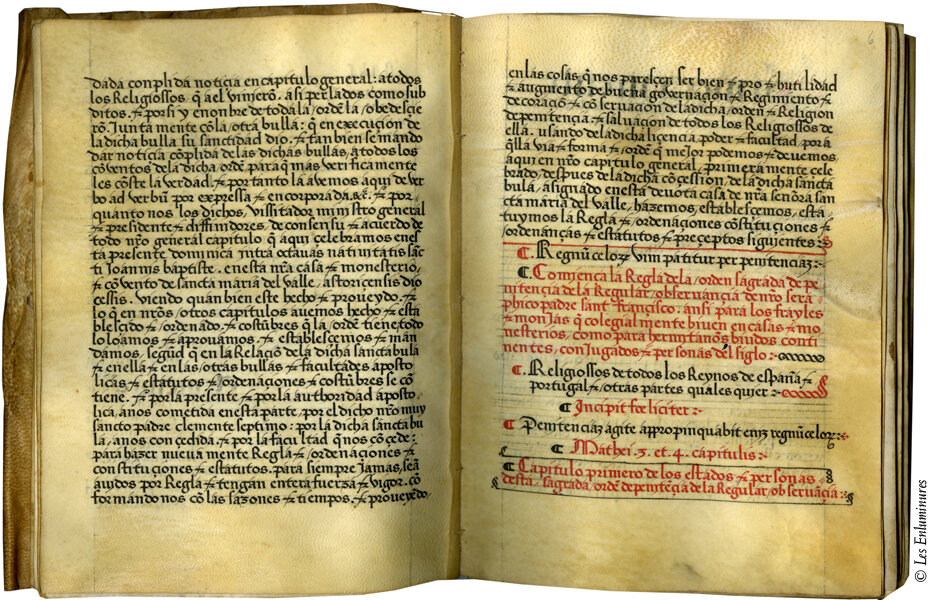 dada conplida noticia en capitulo general: a todos
los Religiossos q̄ a el vinierō. asi perlados como sub
ditos. ⁊ por si y enonbre de toda la / ordē. la / obedesçie
rō. Junta mente cō la / otra bulla: q̄ en execucion de
la dicha bulla su sanctidad dio. ⁊ tanbien se mando
dar noticia cōplida de las dichas bullas, a todos los
cōventos de la dicha / ordē. para q̄ mas verificamente
les cōste la verdad. ⁊ por tanto la avemos aqui de ver
bo ad verbū por expressa ⁊ encorporada. &c̄. ⁊ por-
quanto nos los dichos, vissitador ministro general
⁊ presidente ⁊ diffinidores, de consensu ⁊ acuerdo de
todo nr̄o general capitulo q̄ aqui celebramos enes
ta presente dominica intra octauas natiuitatis sāc
ti Joannis baptiste. enesta nr̄a casa ⁊ monesterio,
⁊ cōvento de sancta maria del valle, astoricensis dio
cessis. viendo quan bien este hecho ⁊ proueydo. ⁊
lo q̄ en nr̄os / otros capitulos auemos hecho ⁊ esta
blesçido ⁊ / ordenado. ⁊ costūbres q̄ la / ordē tiene. todo
lo loamos ⁊ aprouamos. ⁊ establescemos ⁊ mān
damos, segūd q̄ en la Relaciō de la dicha sancta bula
⁊ en ella ⁊ en las / otras bullas ⁊ facultades aposto
licas ⁊ estatutos ⁊ / ordenaciones ⁊ costūbres se cō
tiene. ⁊ por la presente ⁊ por la authoridad aposto
lica, anos cometida en esta parte, por el dicho nr̄o muy
sancto padre clemente septimo: por la dicha sancta bu
la, a nos conçedida. ⁊ por la facultad q̄ nos cōçede:
para hazer nueva mente Regla ⁊ / ordenaciones ⁊
constituciones ⁊ estatutos. para siempre Jamas, seā
auidos por Regla ⁊ tengan entera fuerza ⁊ vigor. cō
formando nos cō las sazones ⁊ tiempos. ⁊ proueyēdo
6
en las cosas, q̄ nos paresçen ser bien ⁊ pro ⁊ hutilidad
⁊ augmento de buena governacion ⁊ Regimiento ⁊
decoraciō ⁊ cōservacion de la dicha / orden ⁊ Religion
de penitencia ⁊ salvacion de todos los Religiossos de
ella. usando de la dicha licencia, poder ⁊ facultad, por a
q̄lla via ⁊ forma ⁊ / ordē, q̄ mejor podemos ⁊ devemos,
aqui en nr̄o capitulo general, primera mente cele
brado, despues de la dicha cōçession, de la dicha sancta
bula, asignado enesta devota casa de nr̄a señora san
cta maria del valle, hazemos, establescemos, esta
tuymos la Regla ⁊ / ordenaciones cōstituçiones ⁊
/ ordenanças ⁊ estatutos ⁊ preceptos siguientes:
¶. Regnū celoꝝ vim patitur per penitenciaȝ:
¶ Comiença la Regla de la / orden sagrada de pe
nitencia de la Regular / observançia de nr̄o sera
phico padre sant Francisco: ansi para los frayles
⁊ monjas q̄ colegialmente biuen en casas ⁊ mo
nesterios, como para hermitaños biudos conti
nentes, conjugados ⁊ personas del siglo:
¶. Religiossos de todos los Reynos de españa ⁊
portugal ⁊ / otras partes quales quier:
¶ Incipit fœliciter:
¶ Penitenciaȝ agite appropinquabit enıȝ regnū celoꝝ:
¶ Mathei. 3. et. 4. capitulis:
¶ Capitulo primero de los estados ⁊ personas
desta. sagrada / ordē de penitēcia de la Regular / observāçia:
© Les Enluminures